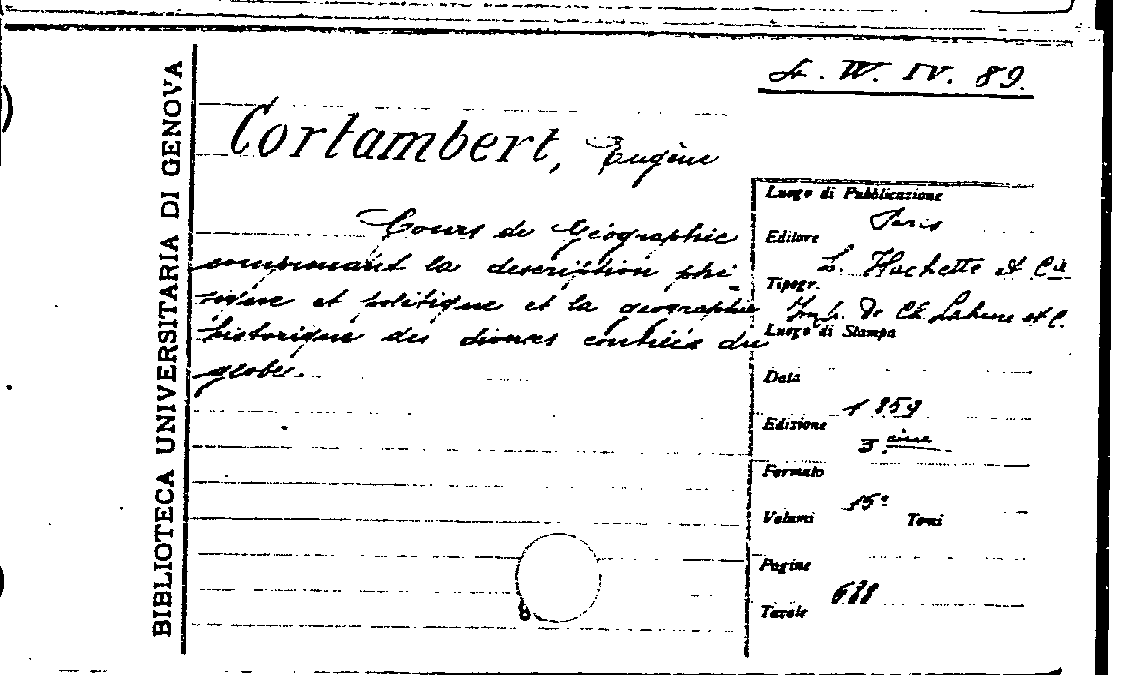 BIBLIOTECA UNIVERSITARIA DI GENOVA
W. IV. 89.
Cortambert, Eugène
Cours de Géographie
comprenant la description phi-
sique et politique et la géographie
historique des diverses contrées du
globe.
Luogo di Pubblicazione
Paris
Editore
L. Hachette et Cie
Tipogr.
Imp. de Ch. Lahure et C.
Luogo di Stampa
Data
1859
Edizione
3.ème
Formato
15°
Volumi Tomi
Pagine
Tavole